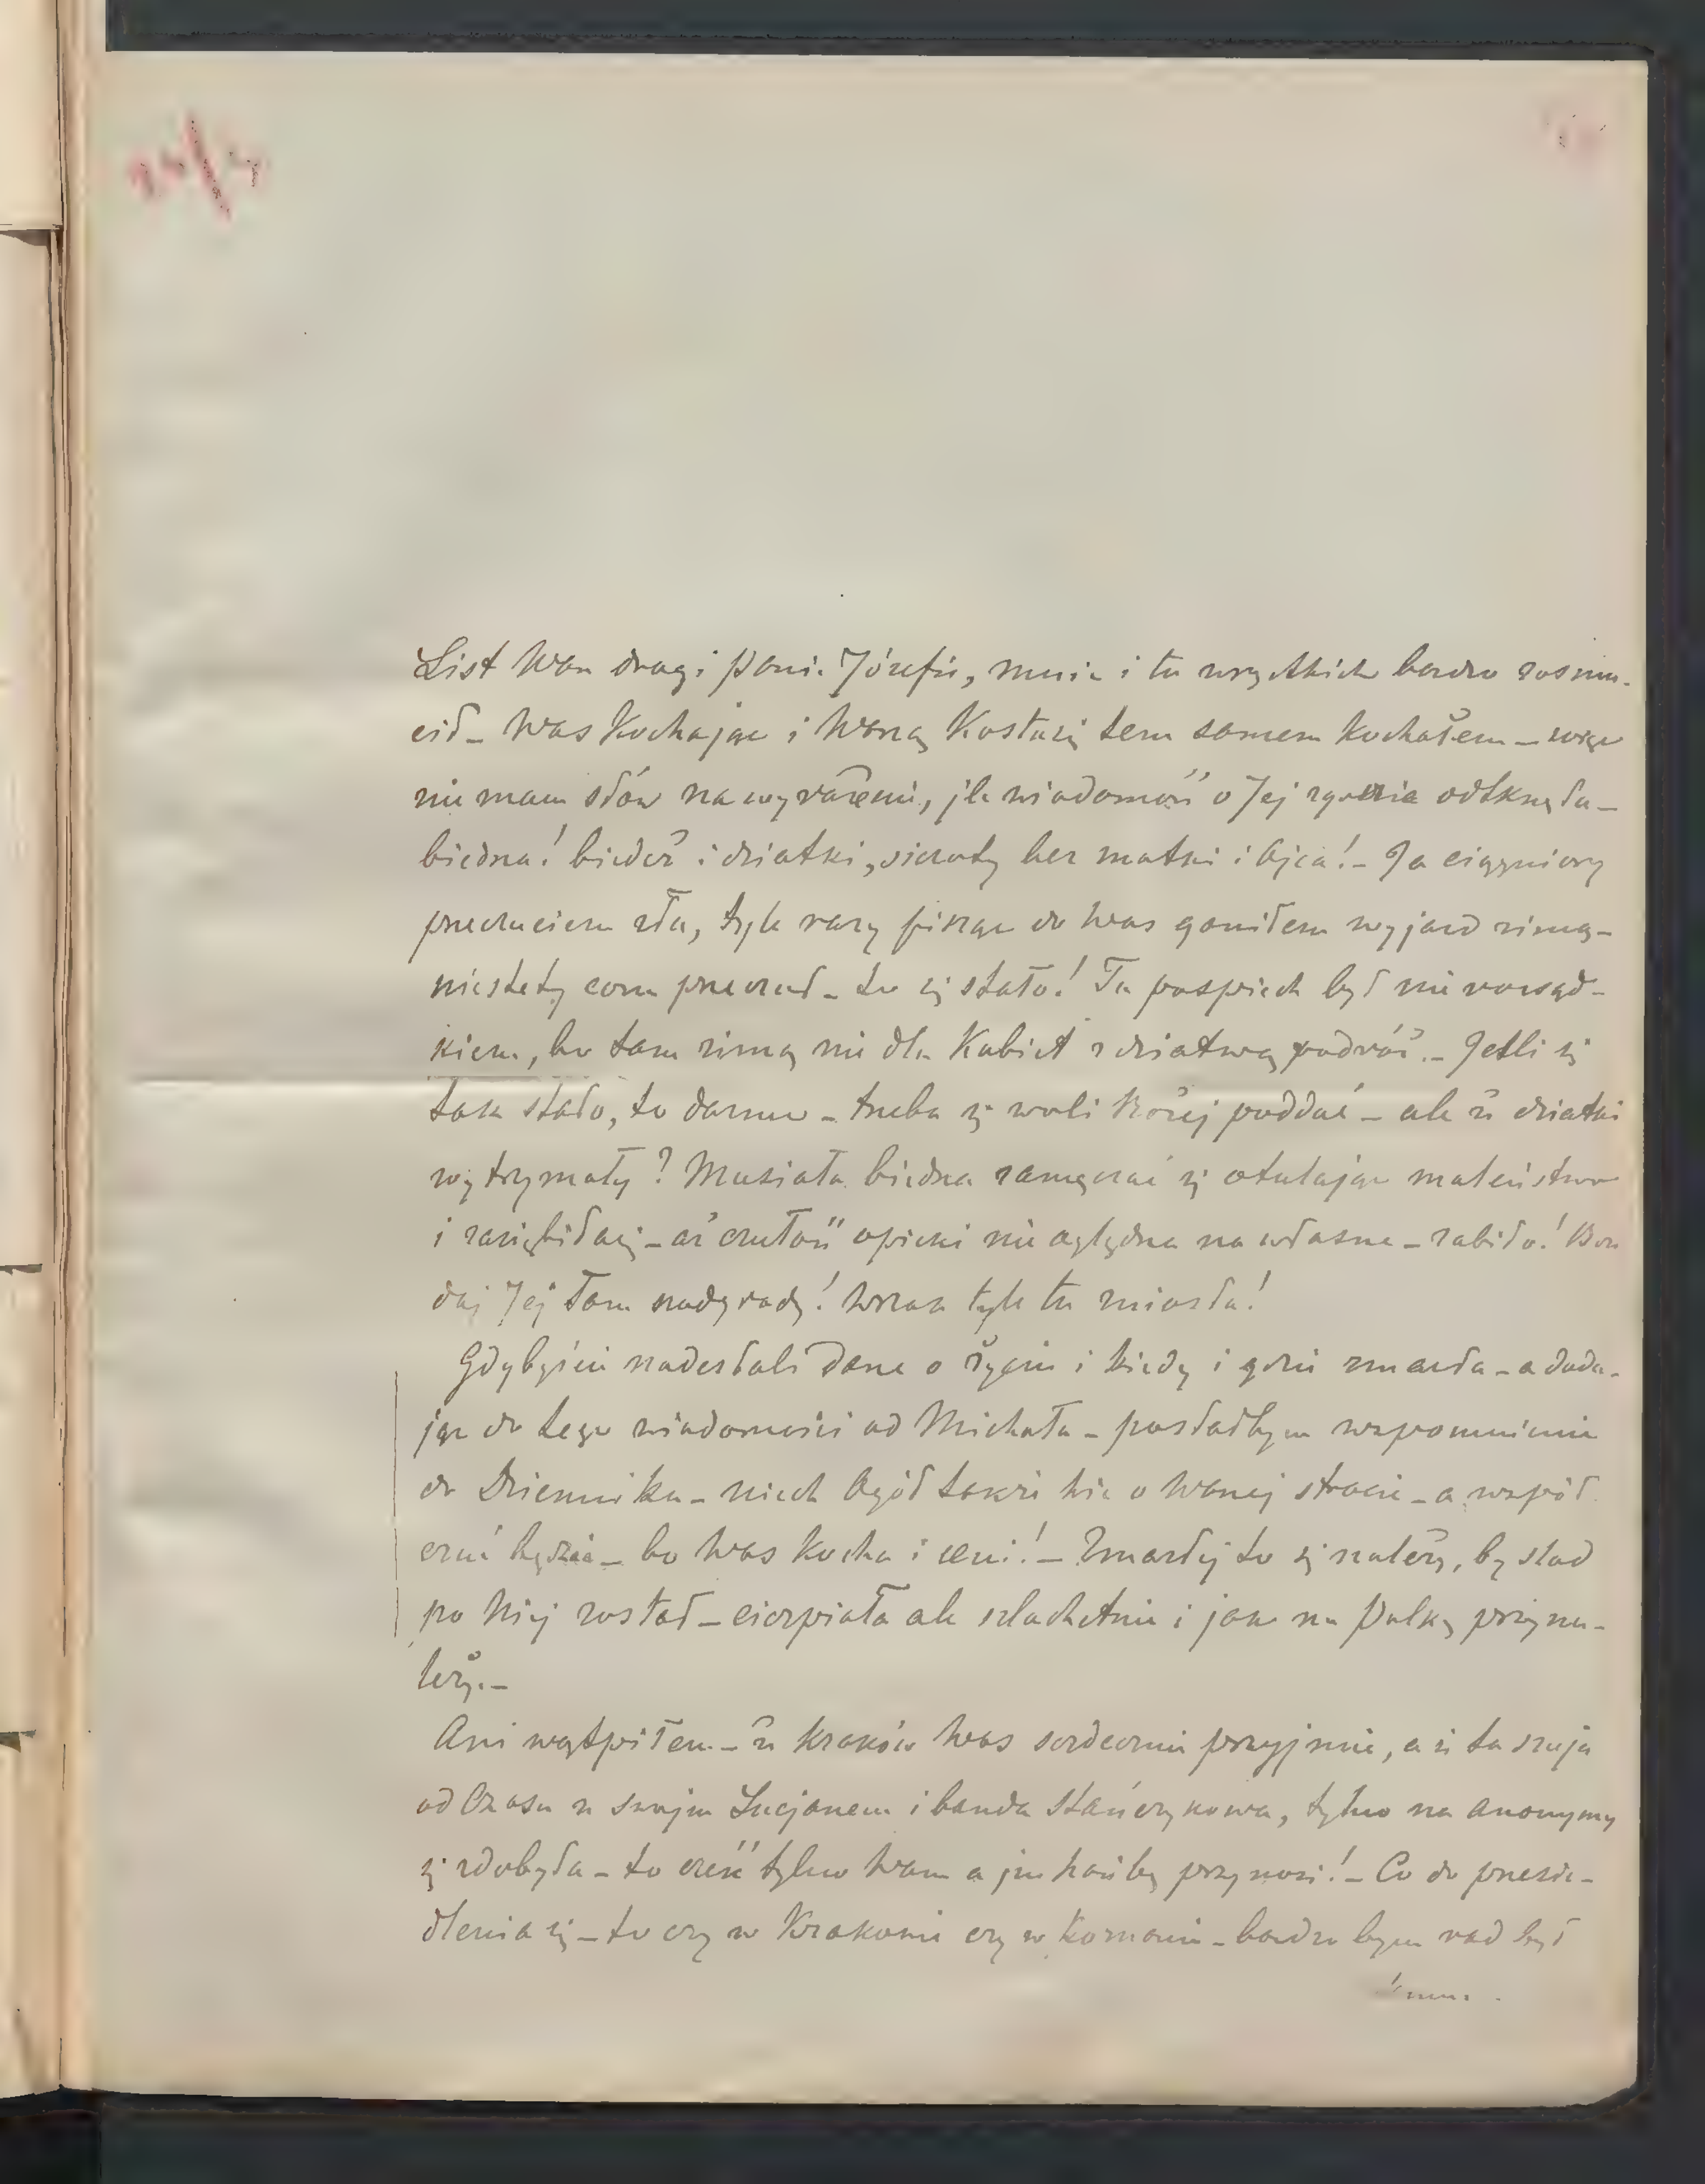 List Wasz drogi Panie Józefie, mnie i tu wszystkich bardzo zasmu-
cił – Was kochając i Waszą Kostusię tem samem kochałem – więc
nie mam słów na wyrażenie, ile wiadomość o Jej zgonie odtknęła –
biedna! biedne i dziatki, sieroty bez matki i Ojca! – Ja ciągniony
przeczuciem zła, tyle razy pisząc do Was ganiłem wyjazd zimą –
niestety com przeczuł – to się stało! Tu pośpiech był nie rozsąd-
kiem, bo tam zimą nie dla Kobiet z dziatwą podróż. – Jeśli się
tak stało, to darmo – trzeba się woli Bożej poddać – ale że dziatki
wytrzymały? Musiała biedna zamęczać się otulając maleństwo
i zaziębiła się – aż czułość opieki nie oględna na własne – zabiło! Boże
daj Jej Tam nadgrodę! wszak tyle tu zniosła!
Gdybyście nadesłali dane o życiu i kiedy i gdzie zmarła – a doda-
jąc do tego wiadomości od Michała – posłałbym wspomnienie
do Dziennika – niech Ogół także wie o Waszej stracie – a współ
czuć będzie – bo Was kocha i ceni! – Zmarłej to się należy, by ślad
po Niej został – cierpiała ale szlachetnie i jak na Polkę przyna-
leży. –
Ani wątpiłem – że Kraków Was serdecznie przyjmie, a że ta szuja
od Czasu ze swojem Lucjanem i banda Stańczykowa, tylko na anonymy
się zdobyła – to cześć tylko Wam a im hańbę przynosi! – Co do przesie-
dlenia się – to czy w Krakowie czy w Poznaniu – bardzo bym rad był